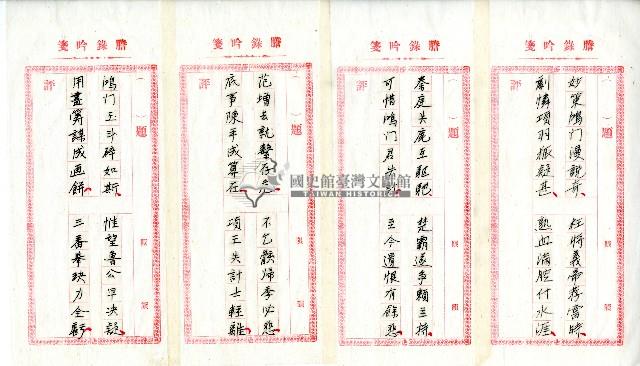 謄錄吟箋
題
妙策鴻門漫說奇 枉將義帝
劇憐項羽撤疑甚 熱血滿腔付水涯
評
謄錄吟箋
題
秦庭失鹿互驅馳 楚霸逐爭顆三持
可惜鴻门君失 至今遺恨有餘悲
評
謄錄吟箋
題
范增去就繫存亡 不乞骸歸季必悲
底事陳平成算在 項王失計士輕離
評
謄錄吟箋
題
鴻门玉斗碎如斯 惟望魯公早決疑
用盡籌謀成画餅 三番舉玦力全虧
評
國史館臺灣文獻館
TAIWAN HISTORICA